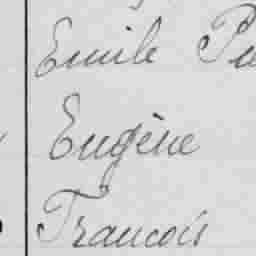 Emile
Eugène
Francois